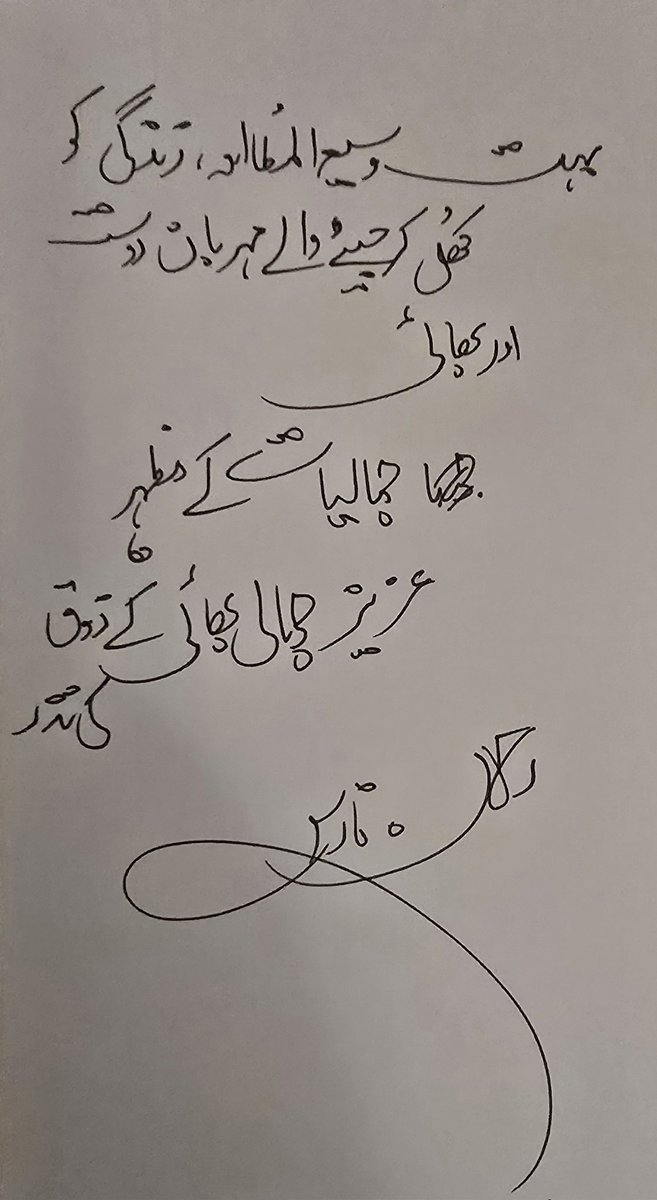 بہت وسیع المُطالعہ، زندگی کو
کھُل کر جینے والے مہربان دوست
اور بھائی
جمالیات کے مظہر
عزیز جمالی بھائی کے ذوق
کی نذر